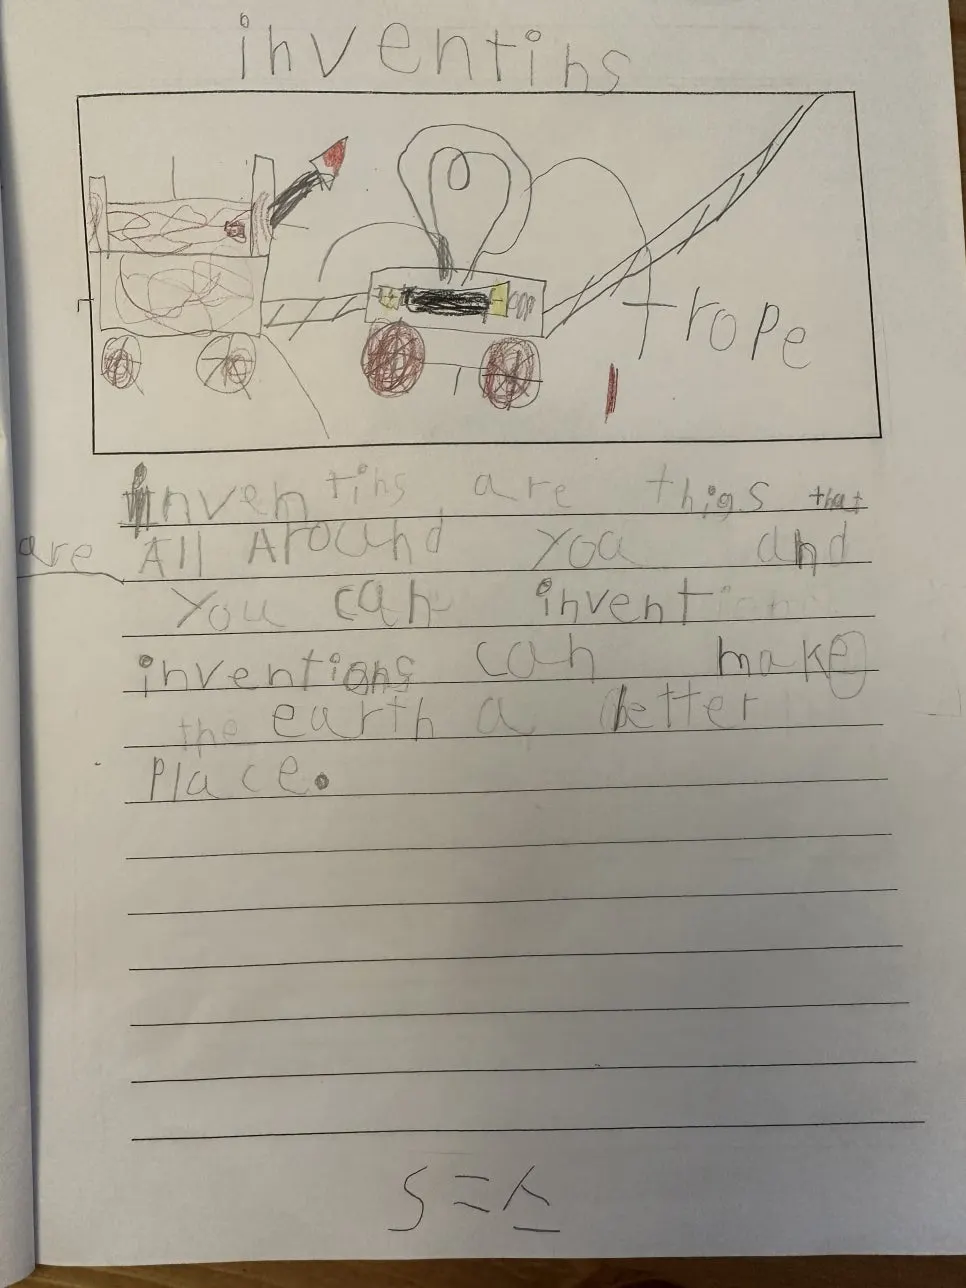 inventins
rope
inventins are thigs that
are All Around you and
you can invent
inventions can make
the earth a better
place.
S = 스